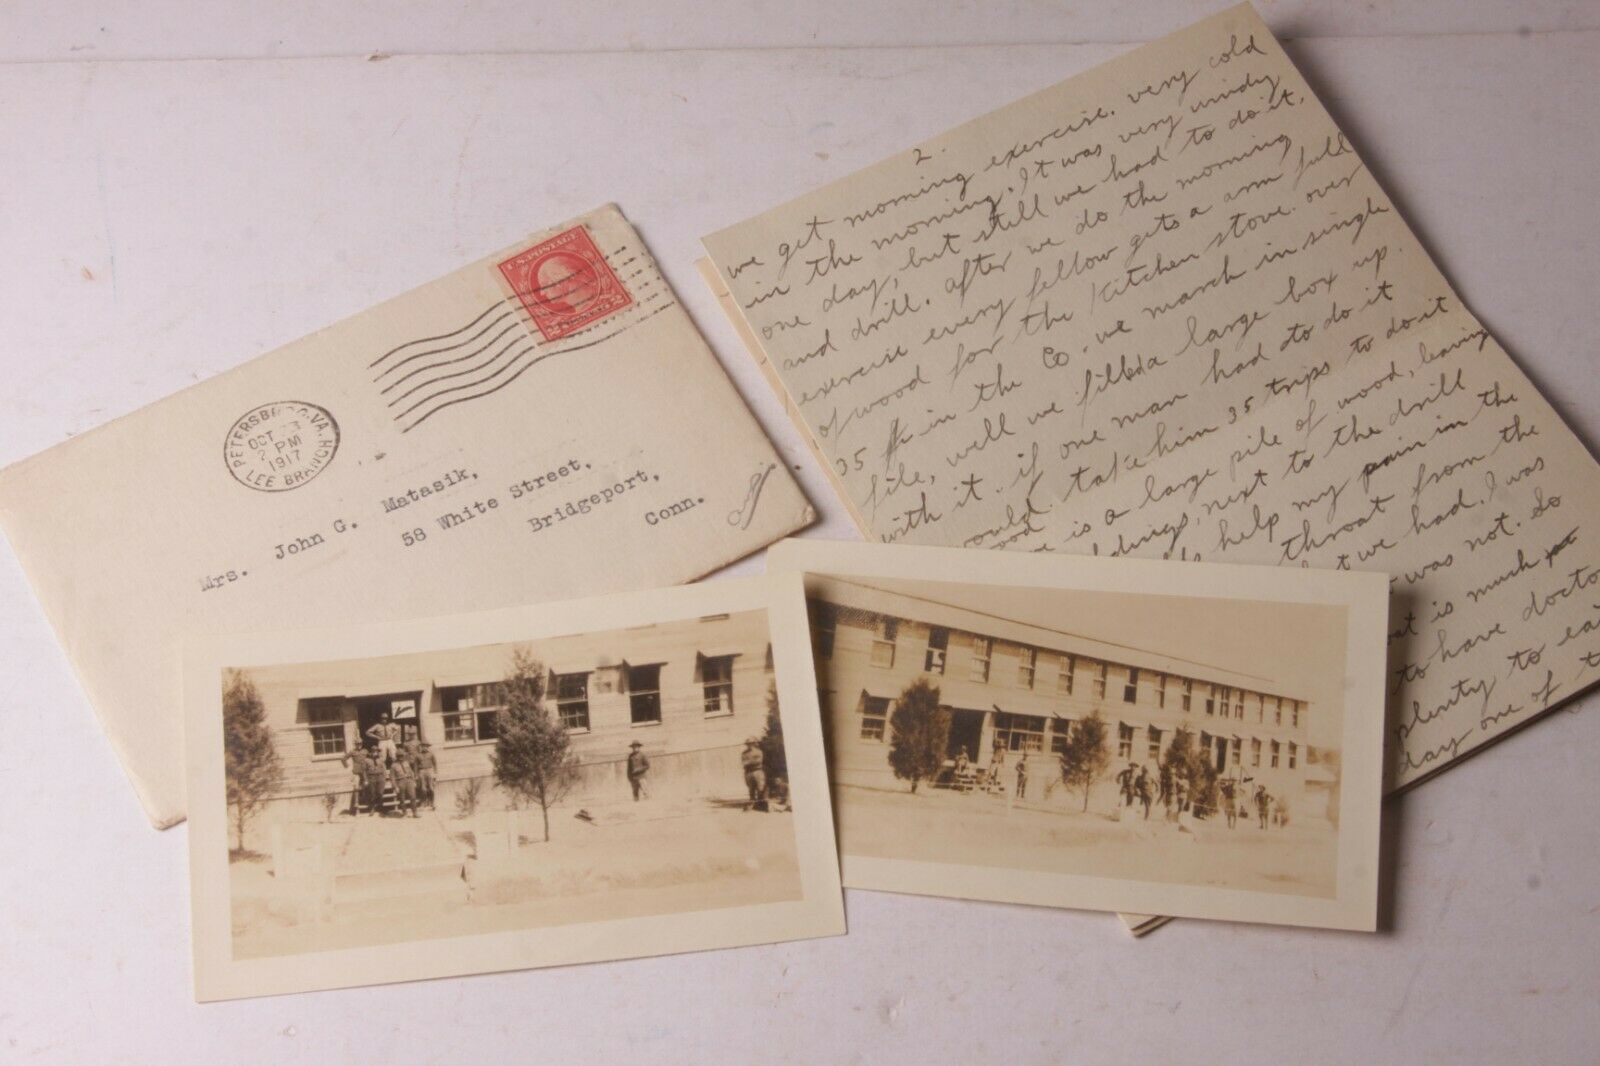 U.S. POSTAGE
2 2
PETERSBURG, VA.
OCT 
2 PM
1917
LEE BRANCH
Mrs. John G. Matasik,
58 White Street,
Bridgeport,
Conn.
2.
we get morning exercise. very cold
in the morning. It was very windy
one day, but still we had to do it,
and drill. after we do the morning
exercise every fellow gets a arm full
of wood for the kitchen stove. over
35 in the Co. we march in single
file, well we filled a large box up.
with it. if one man had to do it
would take him 35 trips to do it
is a large pile of wood, leaving
next to the drill
help my pain in the
throat from the
we had. I was
was not. So
is much
to have
plenty to
day one of